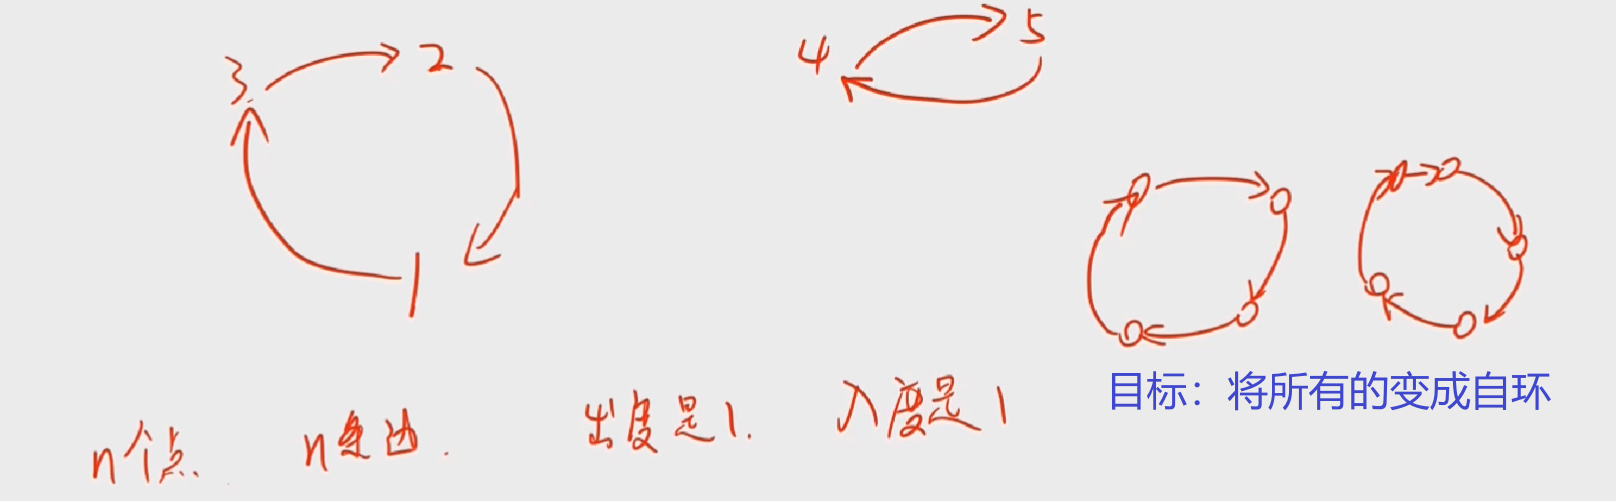 3 2
1
4 5
目标：将所有的变成自环
n个点 n条边. 出度是1. 入度是1